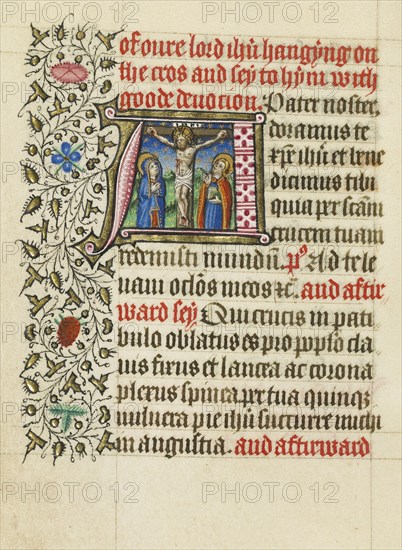 of oure lord ihū hangyng on
the cros and sey to hym with
goode devotion. Pater noster.
Adoramus te
xp̄e ihū et bene
dicimus tibi
quia per scām
crucem tuam
redemisti mundū. ps Ad te le
vavi oc̄los meos ⁊c. and aftir
ward sey Qui crucis in pati
bulo oblatus es pro pp̄lo cla
vis fixus et lancea ac corona
plexus spinea per tua quinqȝ
vulnera pie ihū succurre michi
in angustia. and aftirward
PHOTO 12
PHOTO 12
PHOTO 12
PHOTO 12
PHOTO 12